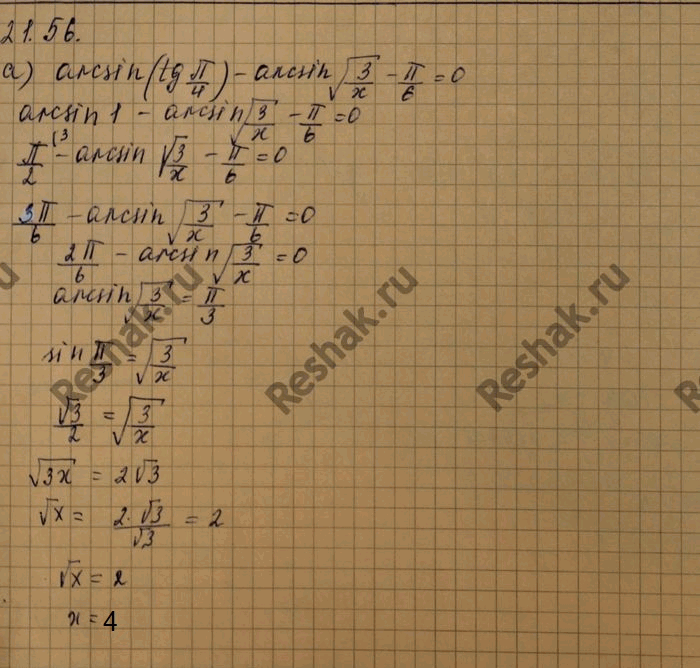 21.56.
а) arcsin(tg π/4) - arcsin√(3/x) - π/6 = 0
arcsin 1 - arcsin√(3/x) - π/6 = 0
π/2 (3 - arcsin √3/x - π/6 = 0
3π/6 - arcsin√(3/x) - π/6 = 0
2π/6 - arcsin√(3/x) = 0
arcsin√(3/x) = π/3
sin π/3 = √(3/x)
√3/2 = √(3/x)
√(3x) = 2√3
√x = 2·√3/√3 = 2
√x = 2
x = 4
Reshak.ru
Reshak.ru
Reshak.ru